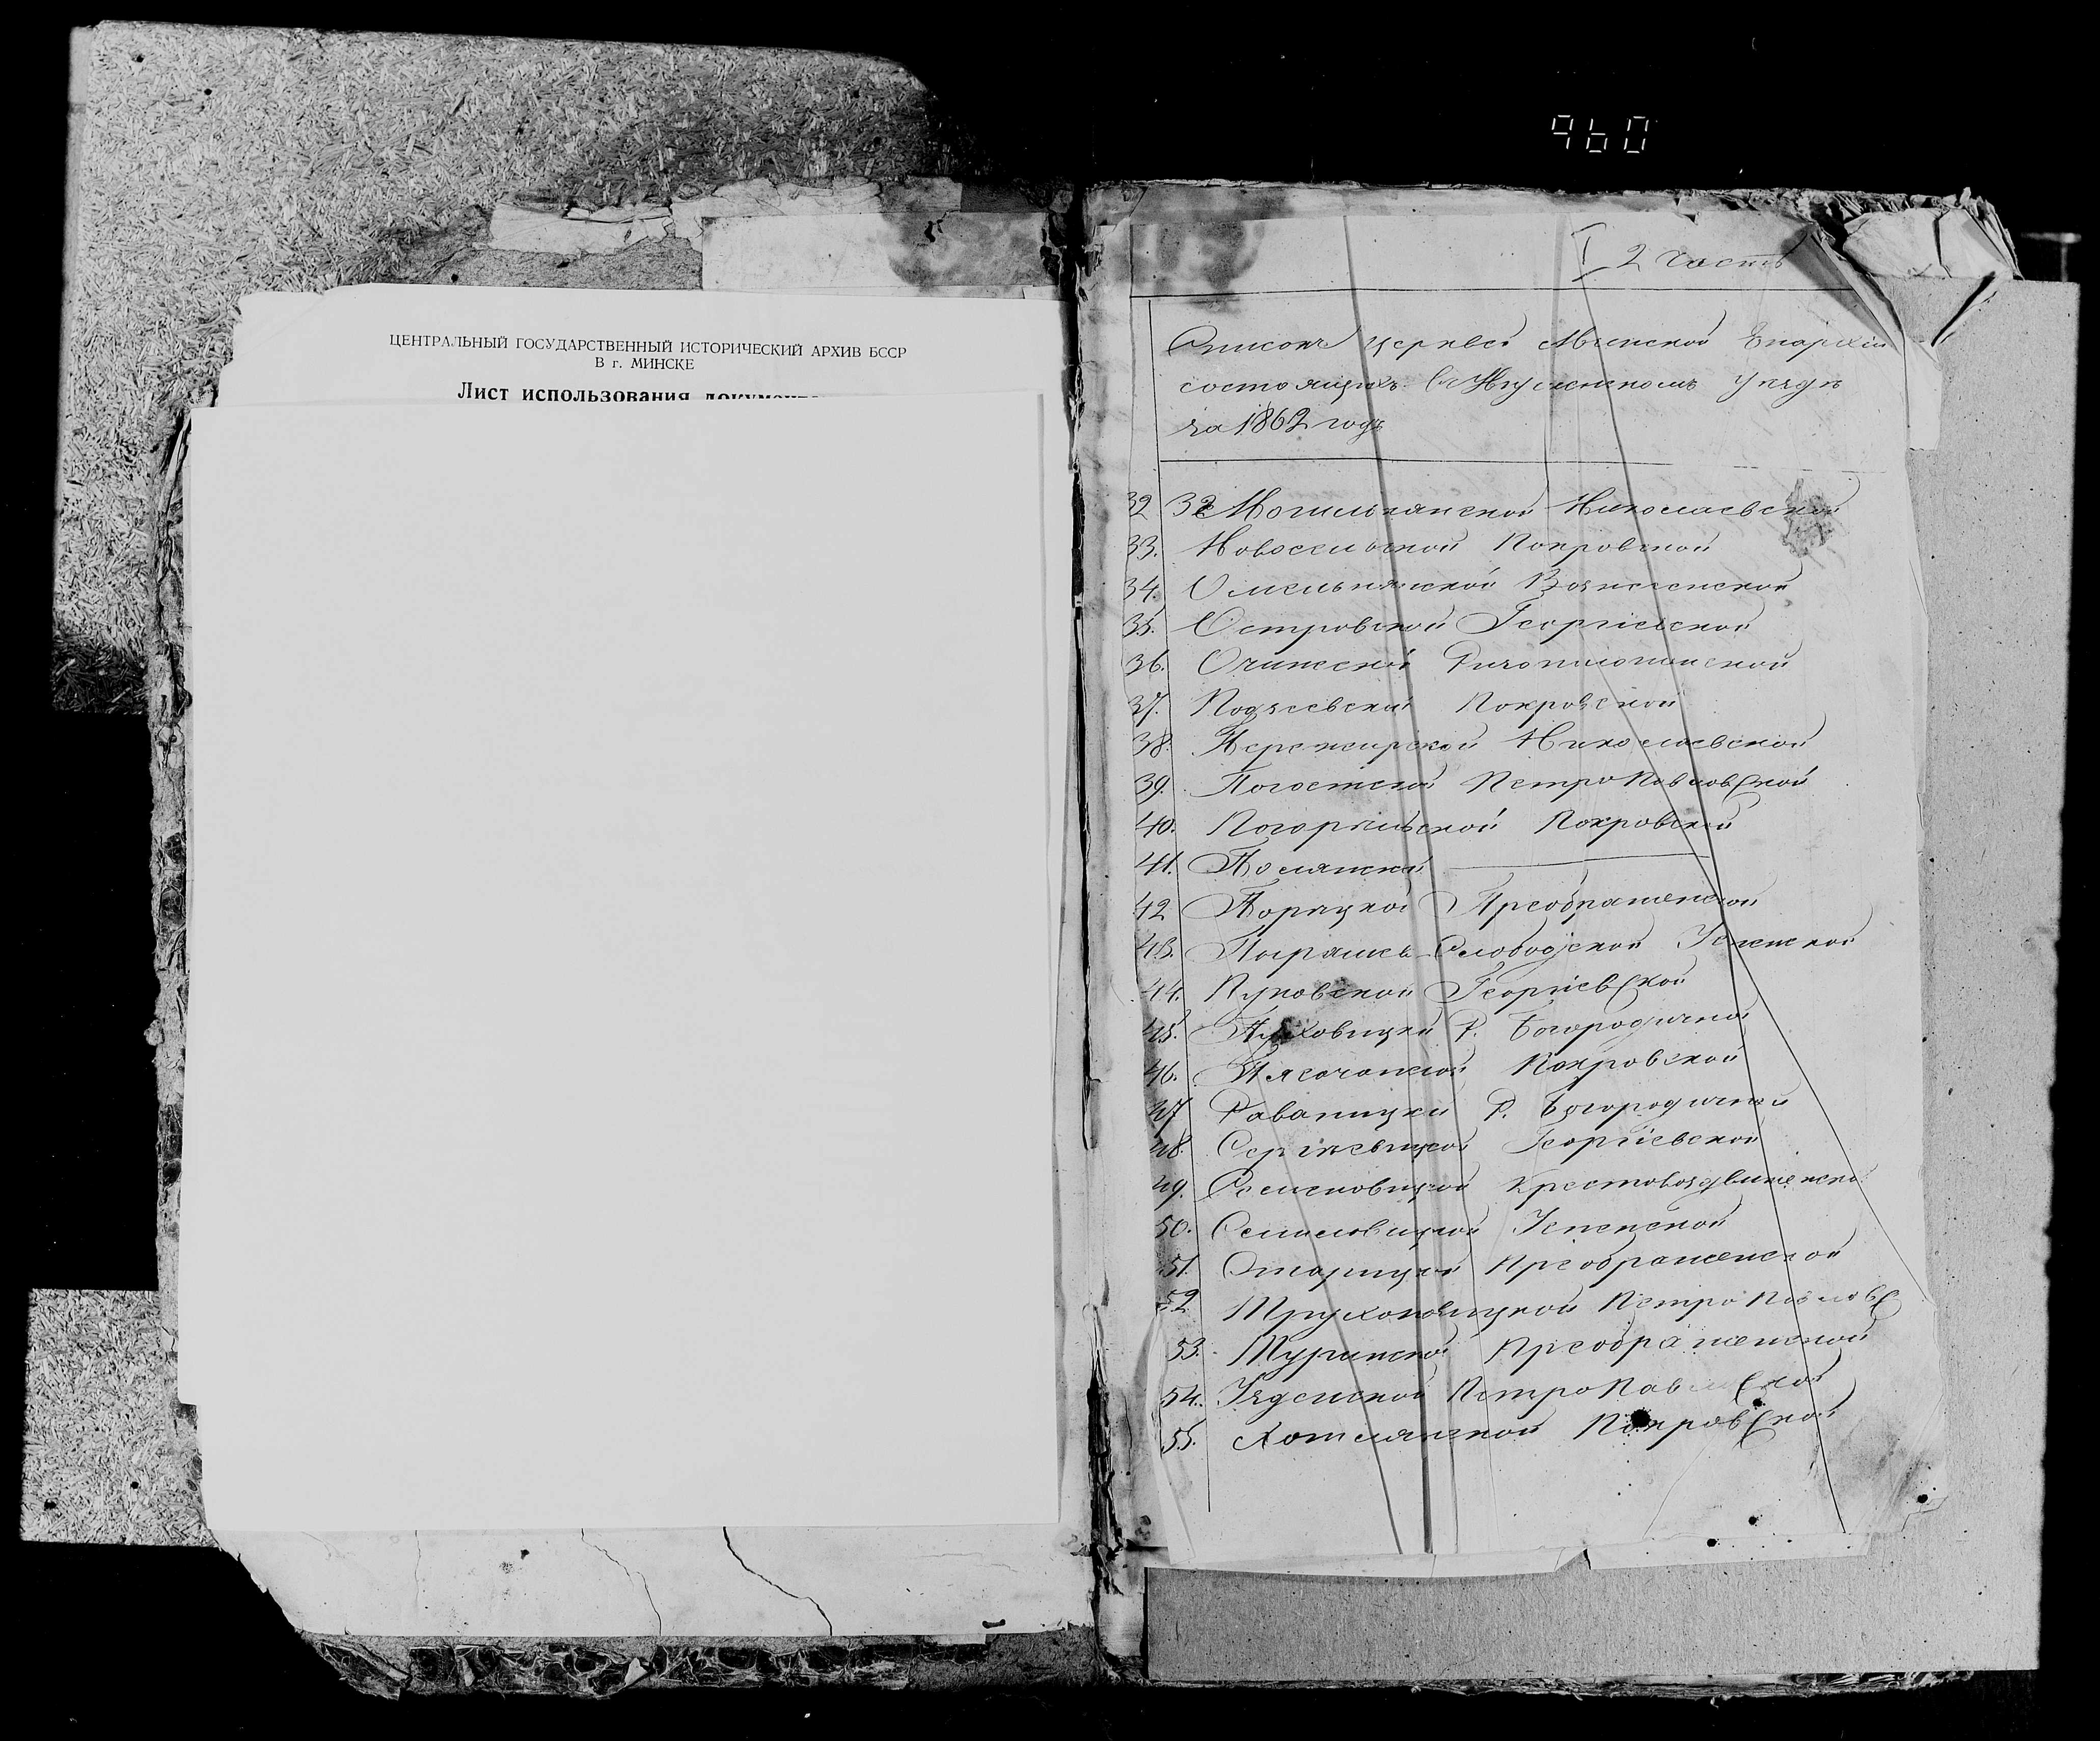 960
ЦЕНТРАЛЬНЫЙ ГОСУДАРСТВЕННЫЙ ИСТОРИЧЕСКИЙ АРХИВ БССР
В г. МИНСКЕ
Лист использования
I 2 часть
Списокъ церквей Минской Епархіи
состоящихъ въ Игуменскомъ уѣздѣ
за 1862 годъ
32 32 Могильнянской Николаевской
33. Новосельской Покровской
34. Омельнянской Вознесенской
35. Островской Георгіевской
36. Очижской
37. Покровской
38. Пережирской Николаевской
39. Погостской Петро Павловской
40. Погорѣльской Покровской
41. Полянской
42 Порѣцкой Преображенской
43. Слободской Успенской
44. Пуковской Георгіевской
45. Пуховицкой Р. Богородичной
46. Пясочанской Покровской
47 Раваницкой Р. Богородичной
48. Сергѣевицкой Георгіевской
49. Крестовоздвиженской
50. Успенской
51. Старицкой Преображенской
52. Трухановицкой Петро Павловс
53. Туринской Преображенской
54. Узденской Петро Павловской
55. Хотлянской Покровской